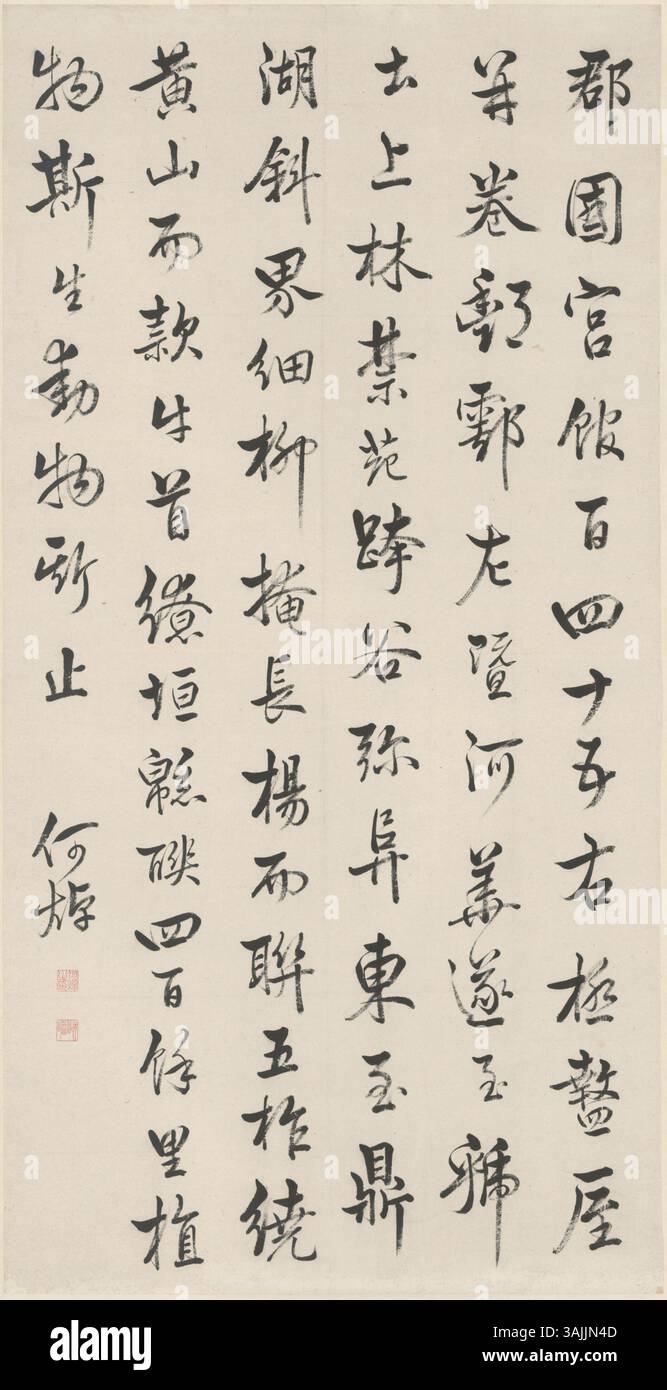 郡國宮館百四十五右極盩厔
并卷酆鄠左暨河華遂至虢
土上林禁苑跨谷弥阜東至鼎
湖斜界細柳掩長楊而聯五柞繞
黃山而款牛首繚垣緜聯四百餘里植
物斯生動物斯止
何焯
alamy
Image ID: 3AJJN4D
www.alamy.com